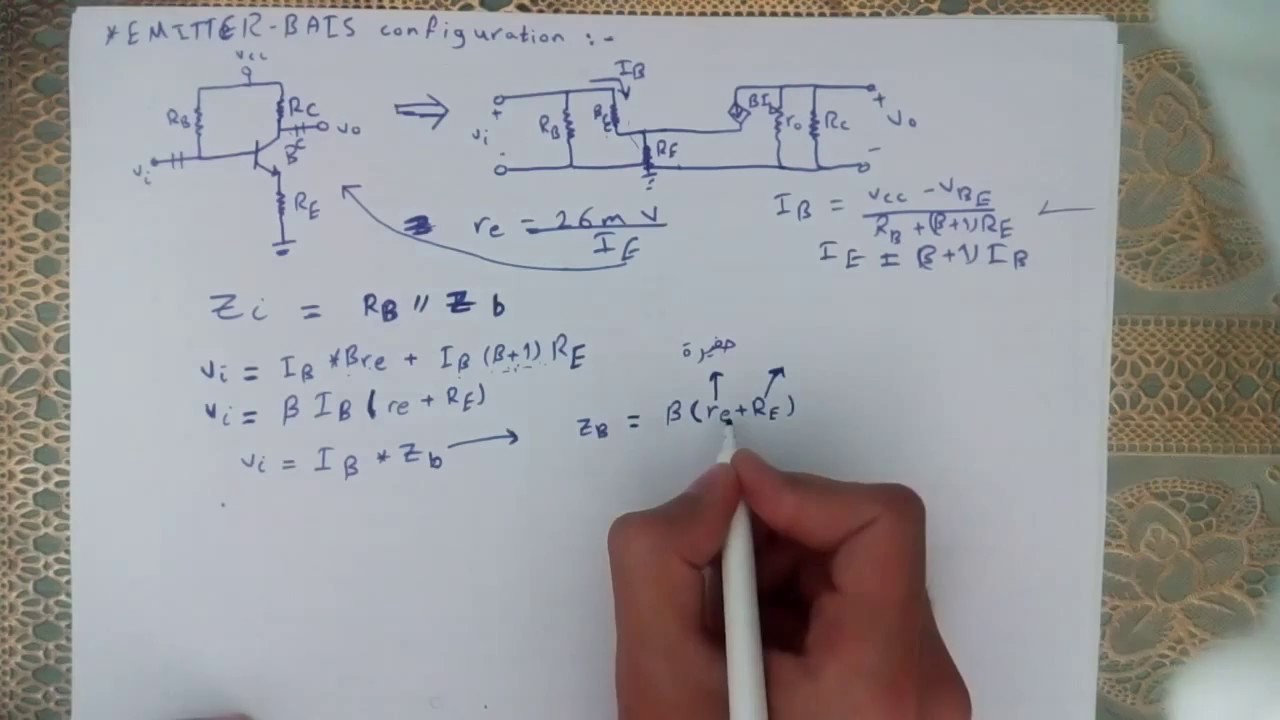 *EMITTER-BAIS configuration :-
Vcc
RB
RC
Vo
B
Vi
RE
IB
+
Vi
-
RB
RE
RE
BIb
ro
Rc
+
Vo
-
re = 26mV / IE
IB = Vcc - VBE / RB + (β+1)RE
IE = β+1) IB
Zi = RB // Zb
Vi = IB *Bre + IB (β+1) RE
Vi = β IB ( re + RE)
Vi = IB * Zb
صغيرة
ZB = β(re+RE)